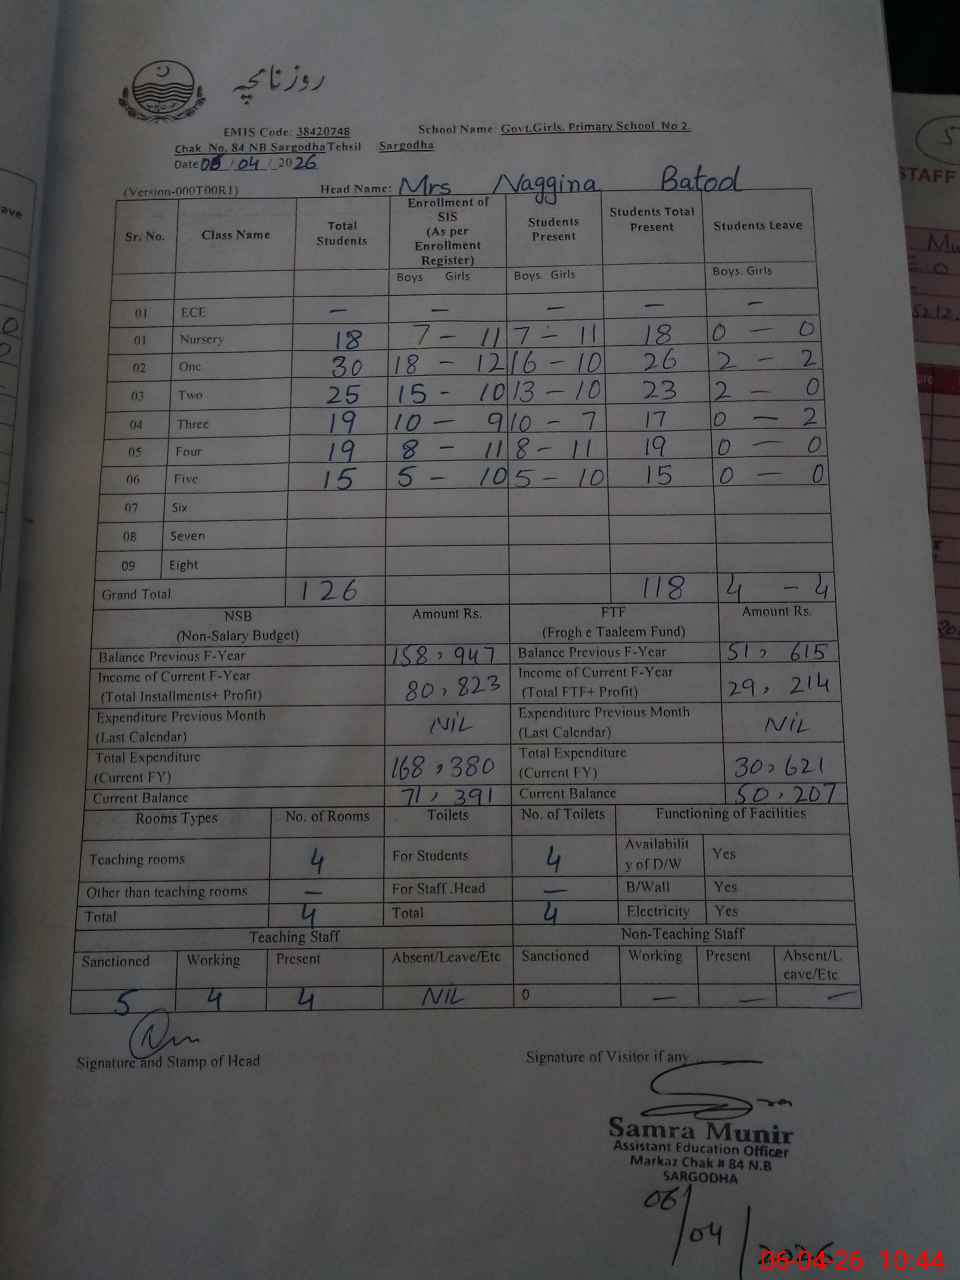 روزنامچہ
EMIS Code: 38420748 School Name: Govt.Girls. Primary School No 2.
Chak No. 84 NB Sargodha Tehsil Sargodha
Date 06/04/2026
(Version-000T00R1) Head Name: Mrs Naggina Batool
Sr. No. Class Name Total Students Enrollment of SIS (As per Enrollment Register) Students Present Students Total Present Students Leave
Boys Girls Boys. Girls Boys. Girls
01 ECE — — — — —
01 Nursery 18 7 – 11 7 – 11 18 0 — 0
02 One 30 18 – 12 16 – 10 26 2 – 2
03 Two 25 15 – 10 13 – 10 23 2 – 0
04 Three 19 10 – 9 10 – 7 17 0 – 2
05 Four 19 8 – 11 8 – 11 19 0 — 0
06 Five 15 5 – 10 5 – 10 15 0 — 0
07 Six
08 Seven
09 Eight
Grand Total 126 118 4 – 4
NSB (Non-Salary Budget) Amount Rs. FTF (Frogh e Taaleem Fund) Amount Rs.
Balance Previous F-Year 158,947 Balance Previous F-Year 51, 615
Income of Current F-Year (Total Installments+ Profit) 80,823 Income of Current F-Year (Total FTF+ Profit) 29, 214
Expenditure Previous Month (Last Calendar) NiL Expenditure Previous Month (Last Calendar) NiL
Total Expenditure (Current FY) 168,380 Total Expenditure (Current FY) 30,621
Current Balance 71, 391 Current Balance 50,207
Rooms Types No. of Rooms Toilets No. of Toilets Functioning of Facilities
Teaching rooms 4 For Students 4 Availability of D/W Yes
Other than teaching rooms — For Staff .Head — B/Wall Yes
Total 4 Total 4 Electricity Yes
Teaching Staff Non-Teaching Staff
Sanctioned Working Present Absent/Leave/Etc Sanctioned Working Present Absent/Leave/Etc
5 4 4 NiL 0 — — —
Signature and Stamp of Head Signature of Visitor if any...
Samra Munir
Assistant Education Officer
Markaz Chak # 84 N.B
SARGODHA
06/04/2026
06-04-26 10:44
STAFF